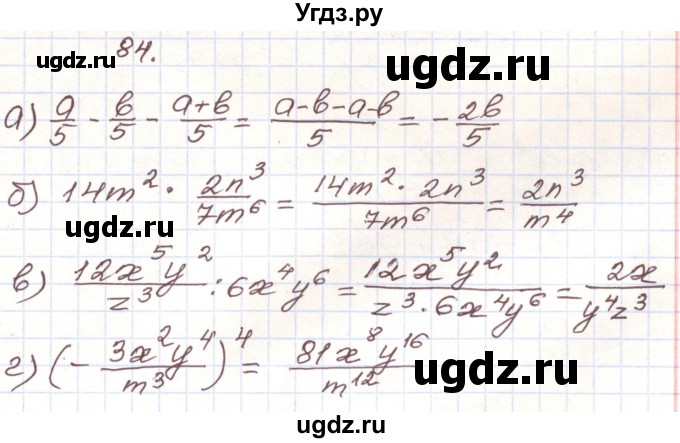 Угдз.ру
ugdz.ru 84. ugdz.ru
ugdz.ru
а) a/5 - b/5 - (a+b)/5 = (a-b-a-b)/5 = - 2b/5
ugdz.ru
б) 14m² · 2n³/7m⁶ = (14m² · 2n³)/7m⁶ = 2n³/m⁴
ugdz.ru ugdz.ru
в) 12x⁵y²/z³ : 6x⁴y⁶ = 12x⁵y²/(z³ · 6x⁴y⁶) = 2x/(y⁴z³)
г) (- 3x²y⁴/m³)⁴ = 81x⁸y¹⁶/m¹²
ugdz.ru
ugdz.ru
ugdz.ru